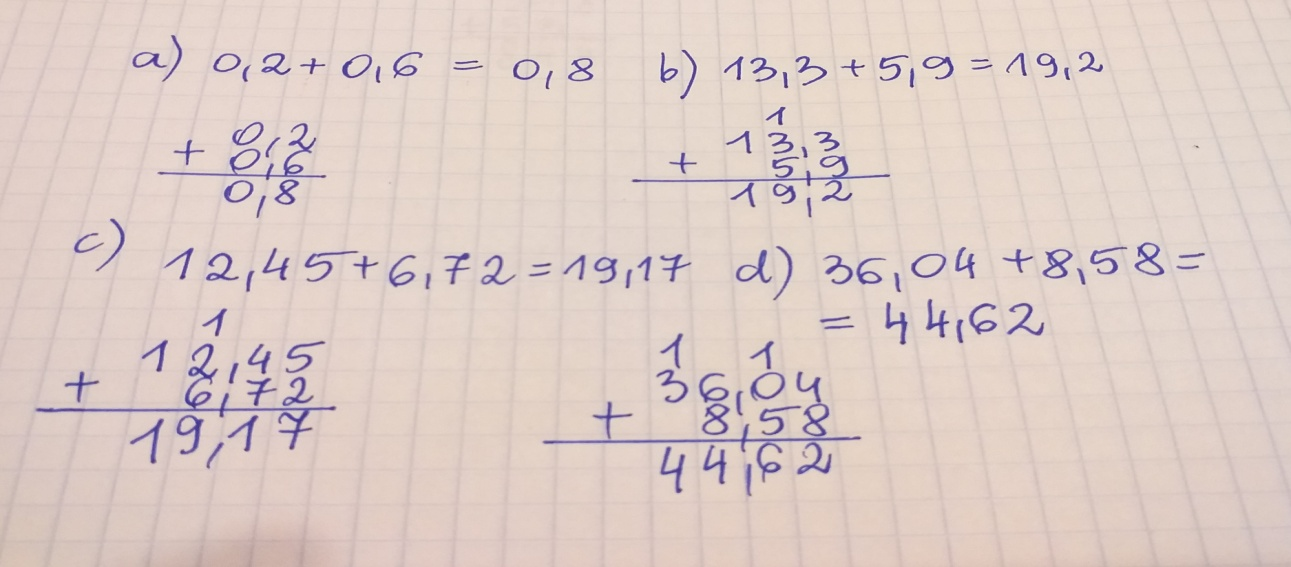 a) 0,2 + 0,6 = 0,8
+ 0,2
0,6
0,8
b) 13,3 + 5,9 = 19,2
1
13,3
+ 5,9
19,2
c) 12,45 + 6,72 = 19,17
1
12,45
+ 6,72
19,17
d) 36,04 + 8,58 =
= 44,62
1 1
36,04
+ 8,58
44,62